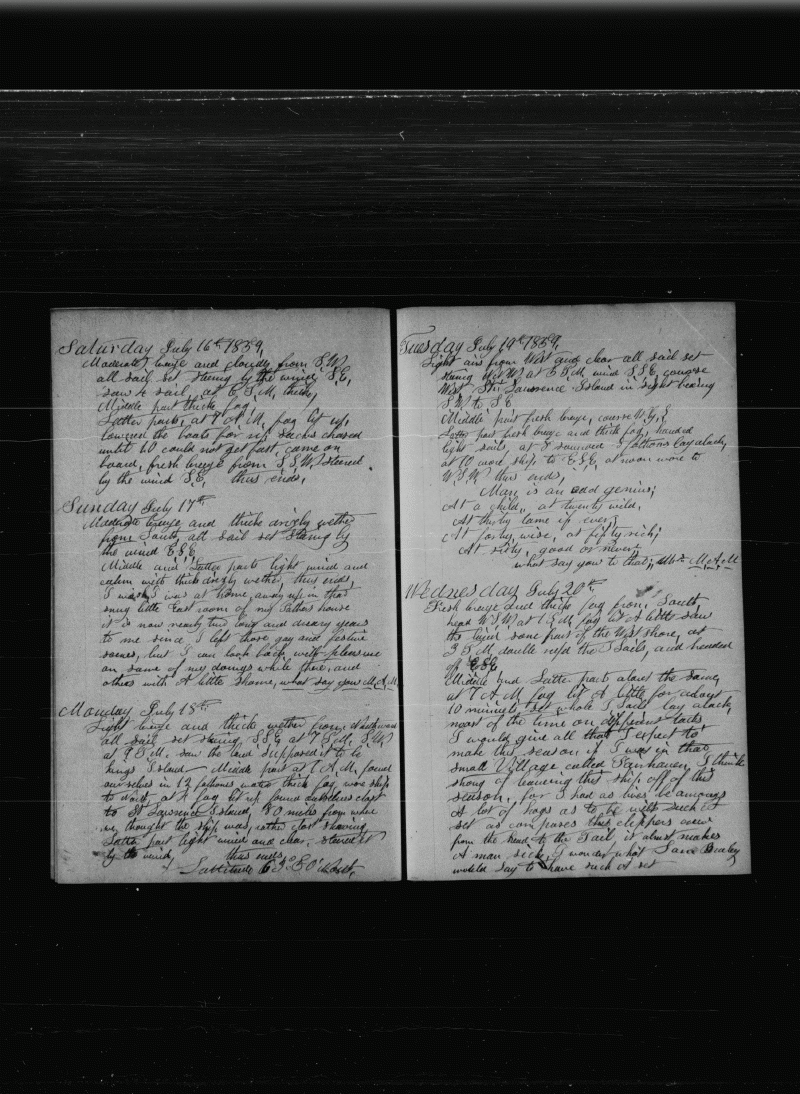 Saturday July 16th 1859,
Moderate breeze and cloudy from S.W.
all sail set steering by the wind S.E,
saw a sail, at 6 P.M, thick,
Middle part thick fog,
Latter parts, at 7 A.M, fog lit up,
lowered the boats for chased
until 10 could not get fast, came on
board, fresh breeze from S.S.W. steered
by the wind S.E, thus ends,
Sunday July 17th
Moderate breeze and thick drizly wether
from South all sail set steering by
the wind E.S.E,
Middle and Latter parts light wind and
calm with thick drizly wether, thus ends,
I wish I was at home, away up in that
snug little East room of my Fathers house
it is now nearly two long and dreary years
to me since I left those gay and festive
scenes, but I can look back with pleasure
on some of my doings while there, and
others with A little shame, what say you M.A.M.
Monday July 18th
Light breeze and thick wether from
all sail set steering, S.S.E, at 7 P.M, S.W.
at 9 P.M, saw the land supposed it to be
Kings Island Middle part at 1 A.M, found
ourselves in 12 fathoms water thick fog, wore ship
to at 4 fog lit up found ourselves close
to St Lawrence Island, 80 miles from where
we, thought the ship was, rather close shaving
Latter part light wind and clear, steered
by the wind, thus ends
Lattitude 63° 50 North,
Tuesday July 19th 1859,
Light airs from West and clear all sail set
steering at 6 P.M wind S.S.E, course
West St. Lawrence Island in sight bearing
S.W. to S.E
Middle part fresh breeze, course
Latter part fresh breeze and thick fog, handed
light sails, at 8 sounded fathoms lay aback,
at 10 wore ship to E.S.E, at noon wore to
W.S.W thus ends,
Man is an odd genius;
At a child, at twenty wild,
At thirty tame if ever;
At forty, wise, at fifty rich;
At sixty, good or never
what say you to that; M.A.M
Wednesday July 20th
Fresh breeze and thick fog from South,
head W.S.W, at 1 P.M, fog lit A little saw
the land some part of the West shore, at
3 P.M double refd the T sails, and headed
of E.S.E
Middle and Latter parts about the same,
at 7 A.M fog lit A little for about
10 minuets, set whole T sails lay aback,
most of the time on different tacks
I would give all that I expect to
make this season if I was in that
small Village called Fairhaven, I think
strong of leaving this ship off of this
season, for I had as lives be amongs
A lot of hogs as to be with such A
set as composes this clippers crew
from the head to the Tail, it almost makes
A man sick, I wonder what
would say to have such A set